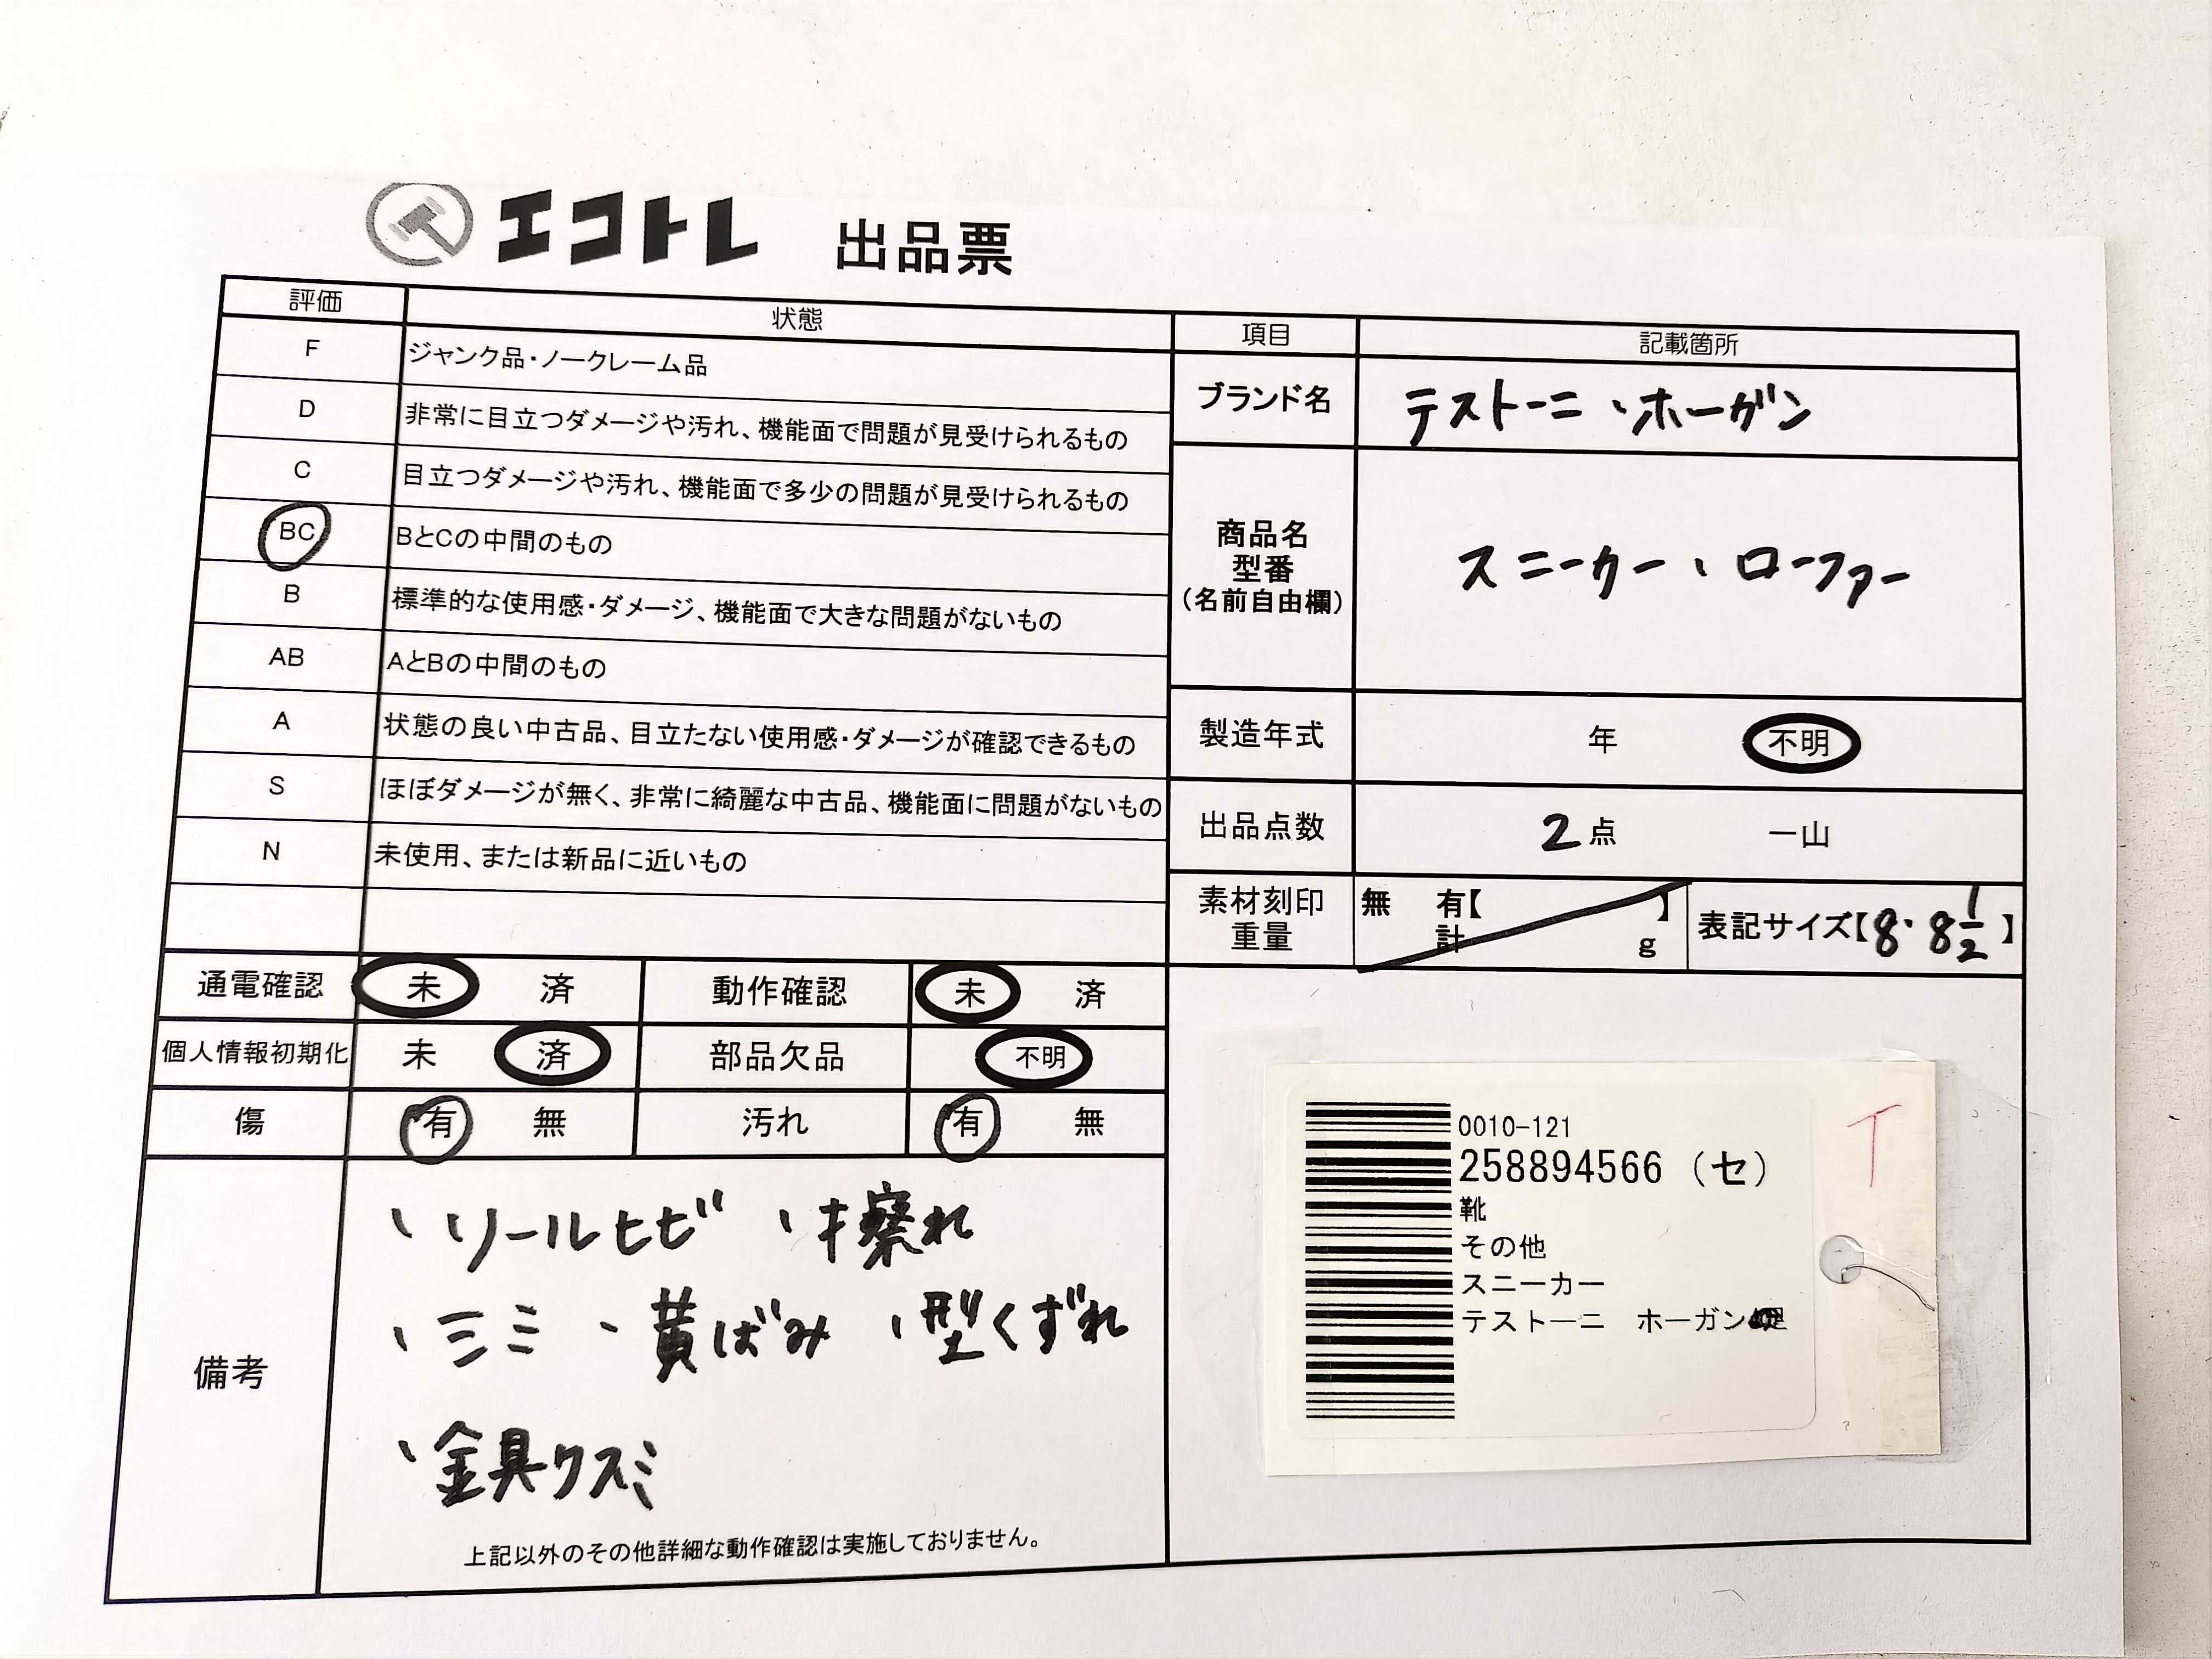 エコトレ 出品票
評価 状態
F ジャンク品・ノークレーム品
D 非常に目立つダメージや汚れ、機能面で問題が見受けられるもの
C 目立つダメージや汚れ、機能面で多少の問題が見受けられるもの
BC BとCの中間のもの
B 標準的な使用感・ダメージ、機能面で大きな問題がないもの
AB AとBの中間のもの
A 状態の良い中古品、目立たない使用感・ダメージが確認できるもの
S ほぼダメージが無く、非常に綺麗な中古品、機能面に問題がないもの
N 未使用、または新品に近いもの
項目 記載箇所
ブランド名 テストーニ、ホーガン
商品名
型番
(名前自由欄)
スニーカー、ローファー
製造年式 年 不明
出品点数 2点 一山
素材刻印 無 有【 】
重量 計 g
表記サイズ【8・8 1/2】
通電確認 未 済 動作確認 未 済
個人情報初期化 未 済 部品欠品 不明
傷 有 無 汚れ 有 無
備考
、ソールヒビ 、擦れ
、シミ 、黄ばみ 、型くずれ
、金具クスミ
上記以外のその他詳細な動作確認は実施しておりません。
0010-121
258894566 (セ)
靴
その他
スニーカー
テストーニ ホーガン
T